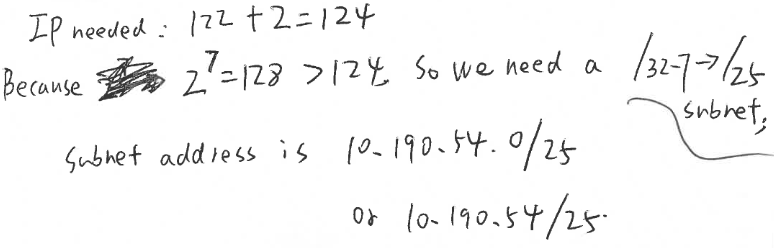 IP needed: 122 + 2 = 124
Because 2^7 = 128 > 124, so we need a /32-7→/25
subnet;
subnet address is 10.190.54.0/25
or 10.190.54/25.